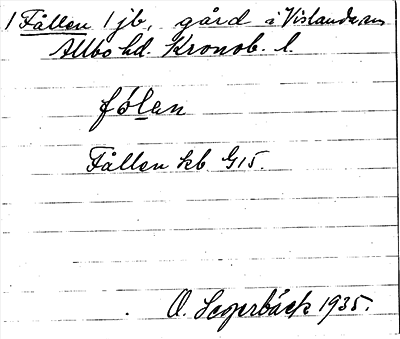 1 Fållen 1 jb, gård i Vislanda sn
Allbo hd. Kronob. l.
fölen
Fållen kb G15.
O. Segerbäck 1935.